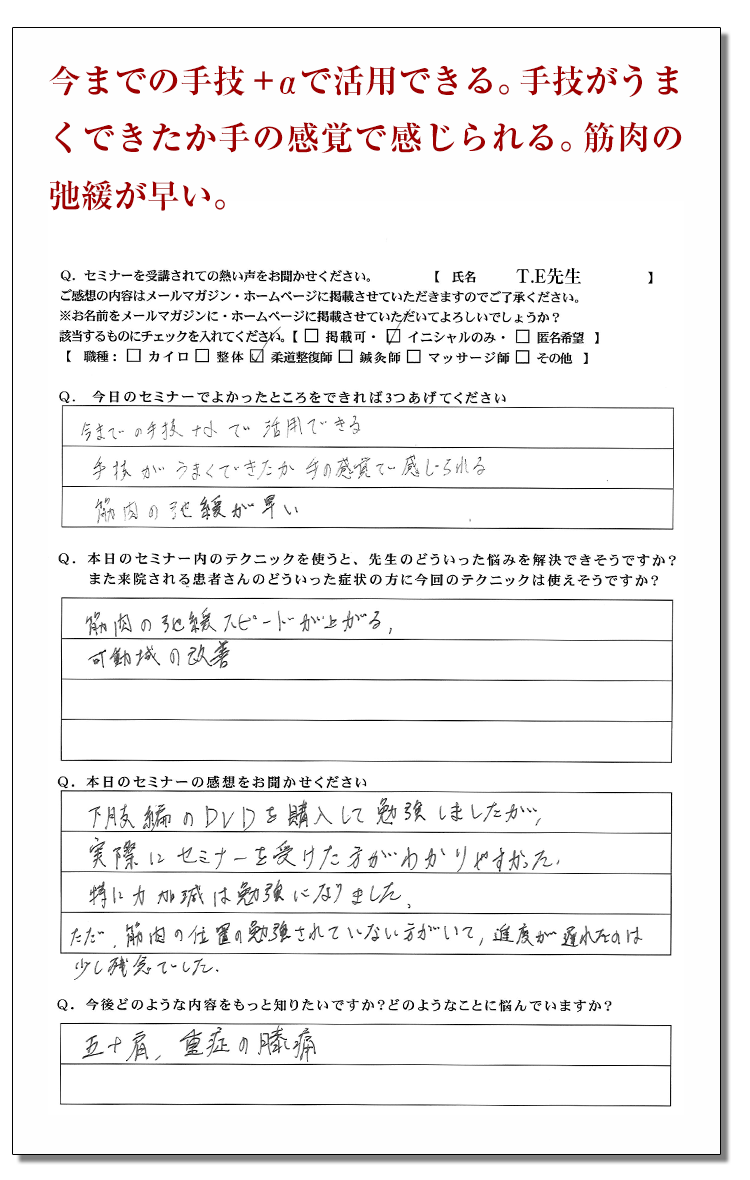 今までの手技＋αで活用できる。手技がうま
くできたか手の感覚で感じられる。筋肉の
弛緩が早い。
Q．セミナーを受講されての熱い声をお聞かせください。 【 氏名 T.E先生 】
ご感想の内容はメールマガジン・ホームページに掲載させていただきますのでご了承ください。
※お名前をメールマガジンに・ホームページに掲載させていただいてよろしいでしょうか？
該当するものにチェックを入れてください。【 □ 掲載可・ ☑ イニシャルのみ・ □ 匿名希望 】
【 職種： □ カイロ □ 整体 ☑ 柔道整復師 □ 鍼灸師 □ マッサージ師 □ その他 】
Q． 今日のセミナーでよかったところをできれば3つあげてください
今までの手技＋αで活用できる
手技がうまくできたか手の感覚で感じられる
筋肉の弛緩が早い
Q．本日のセミナー内のテクニックを使うと、先生のどういった悩みを解決できそうですか？
また来院される患者さんのどういった症状の方に今回のテクニックは使えそうですか？
筋肉の弛緩スピードが上がる，
可動域の改善
Q．本日のセミナーの感想をお聞かせください
下肢編のDVDを購入して勉強しましたが，
実際にセミナーを受けた方がわかりやすかった．
特に力加減は勉強になりました。
ただ，筋肉の位置の勉強されていない方がいて，進度が遅れたのは
少し残念でした．
Q．今後どのような内容をもっと知りたいですか？どのようなことに悩んでいますか？
五十肩，重症の膝痛